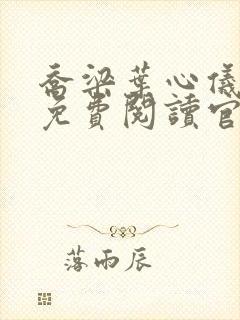 喬梁葉心儀
免費閱讀官
落雨辰